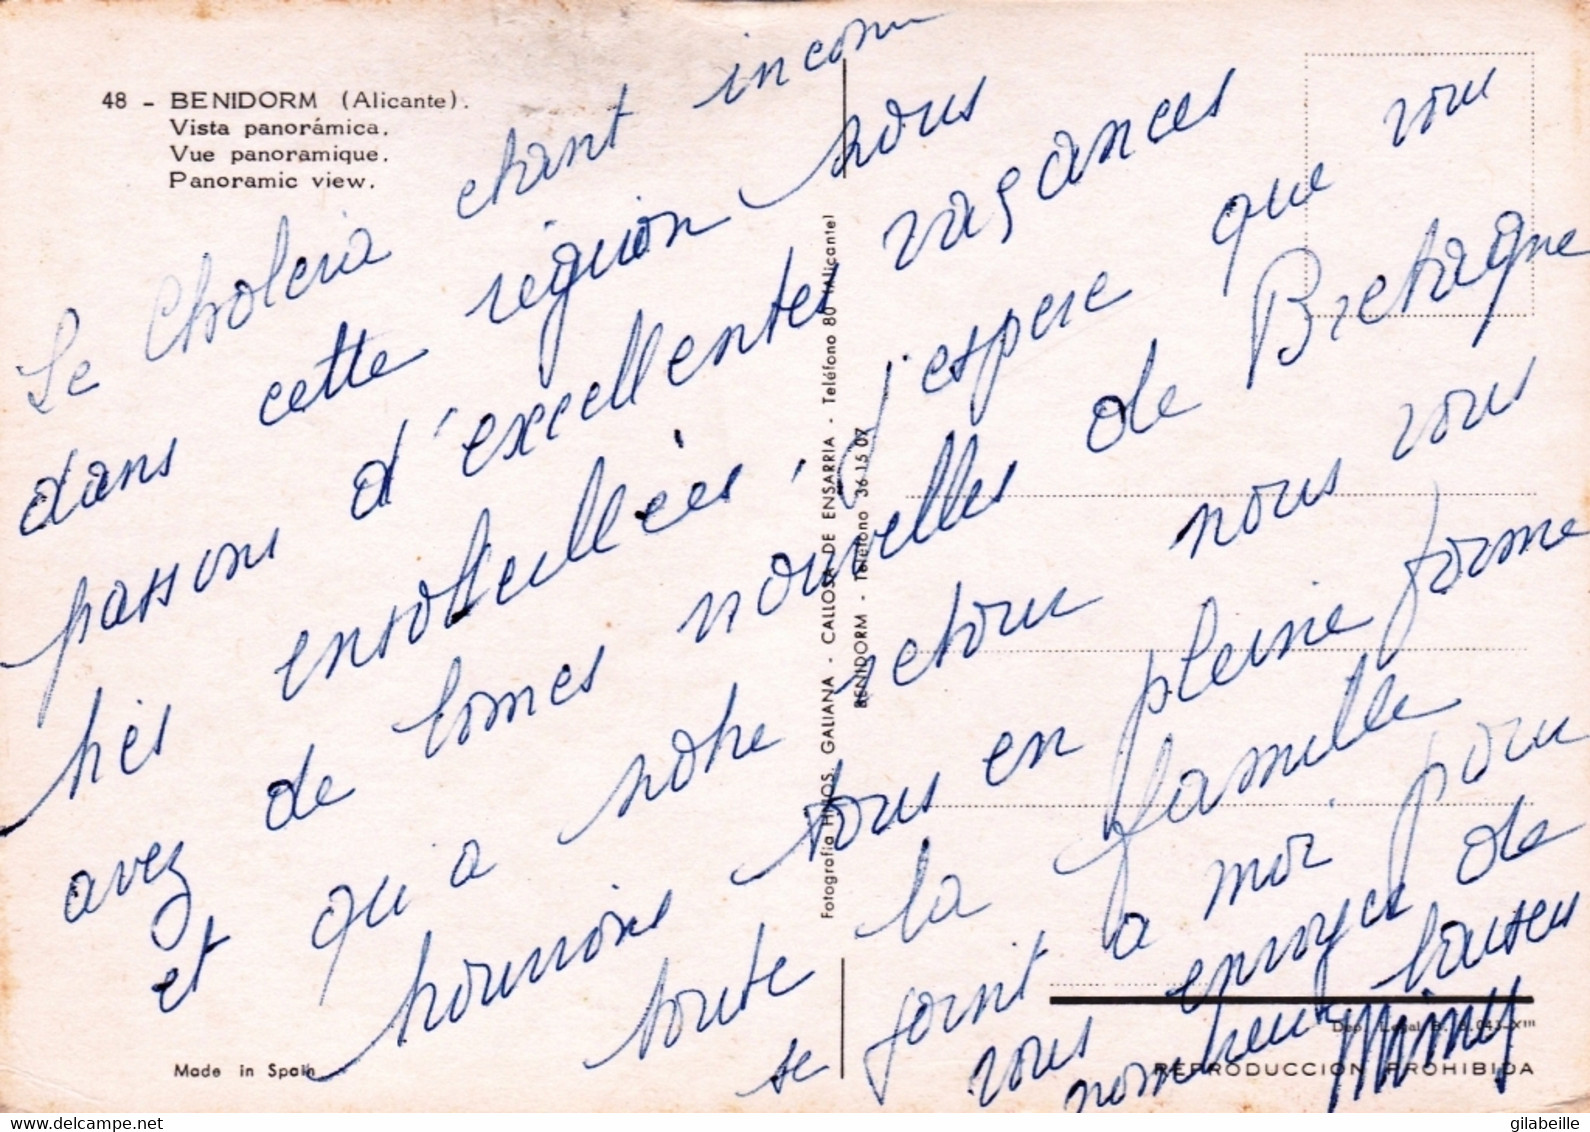 48 - BENIDORM (Alicante).
Vista panorámica.
Vue panoramique.
Panoramic view.
Le Cholera etant inconnu
dans cette région nous
passons d'excellentes vacances
très ensolleillées. J'espere que vous
avez de bonnes nouvelles de Bretagne
et qu'a notre retour nous vous
trouvions tous en pleine forme
toute la famille
se joint a moi pour
vous envoyer de
nombreux baisers
Mimy
Fotografía HNOS. GALIANA - CALLOSA DE ENSARRIA - Teléfono 80 (Alicante)
BENIDORM - Teléfono 36-15 07
Dep. Legal B. 043-XIII
REPRODUCCION PROHIBIDA
Made in Spain
delcampe.net
gilabeille